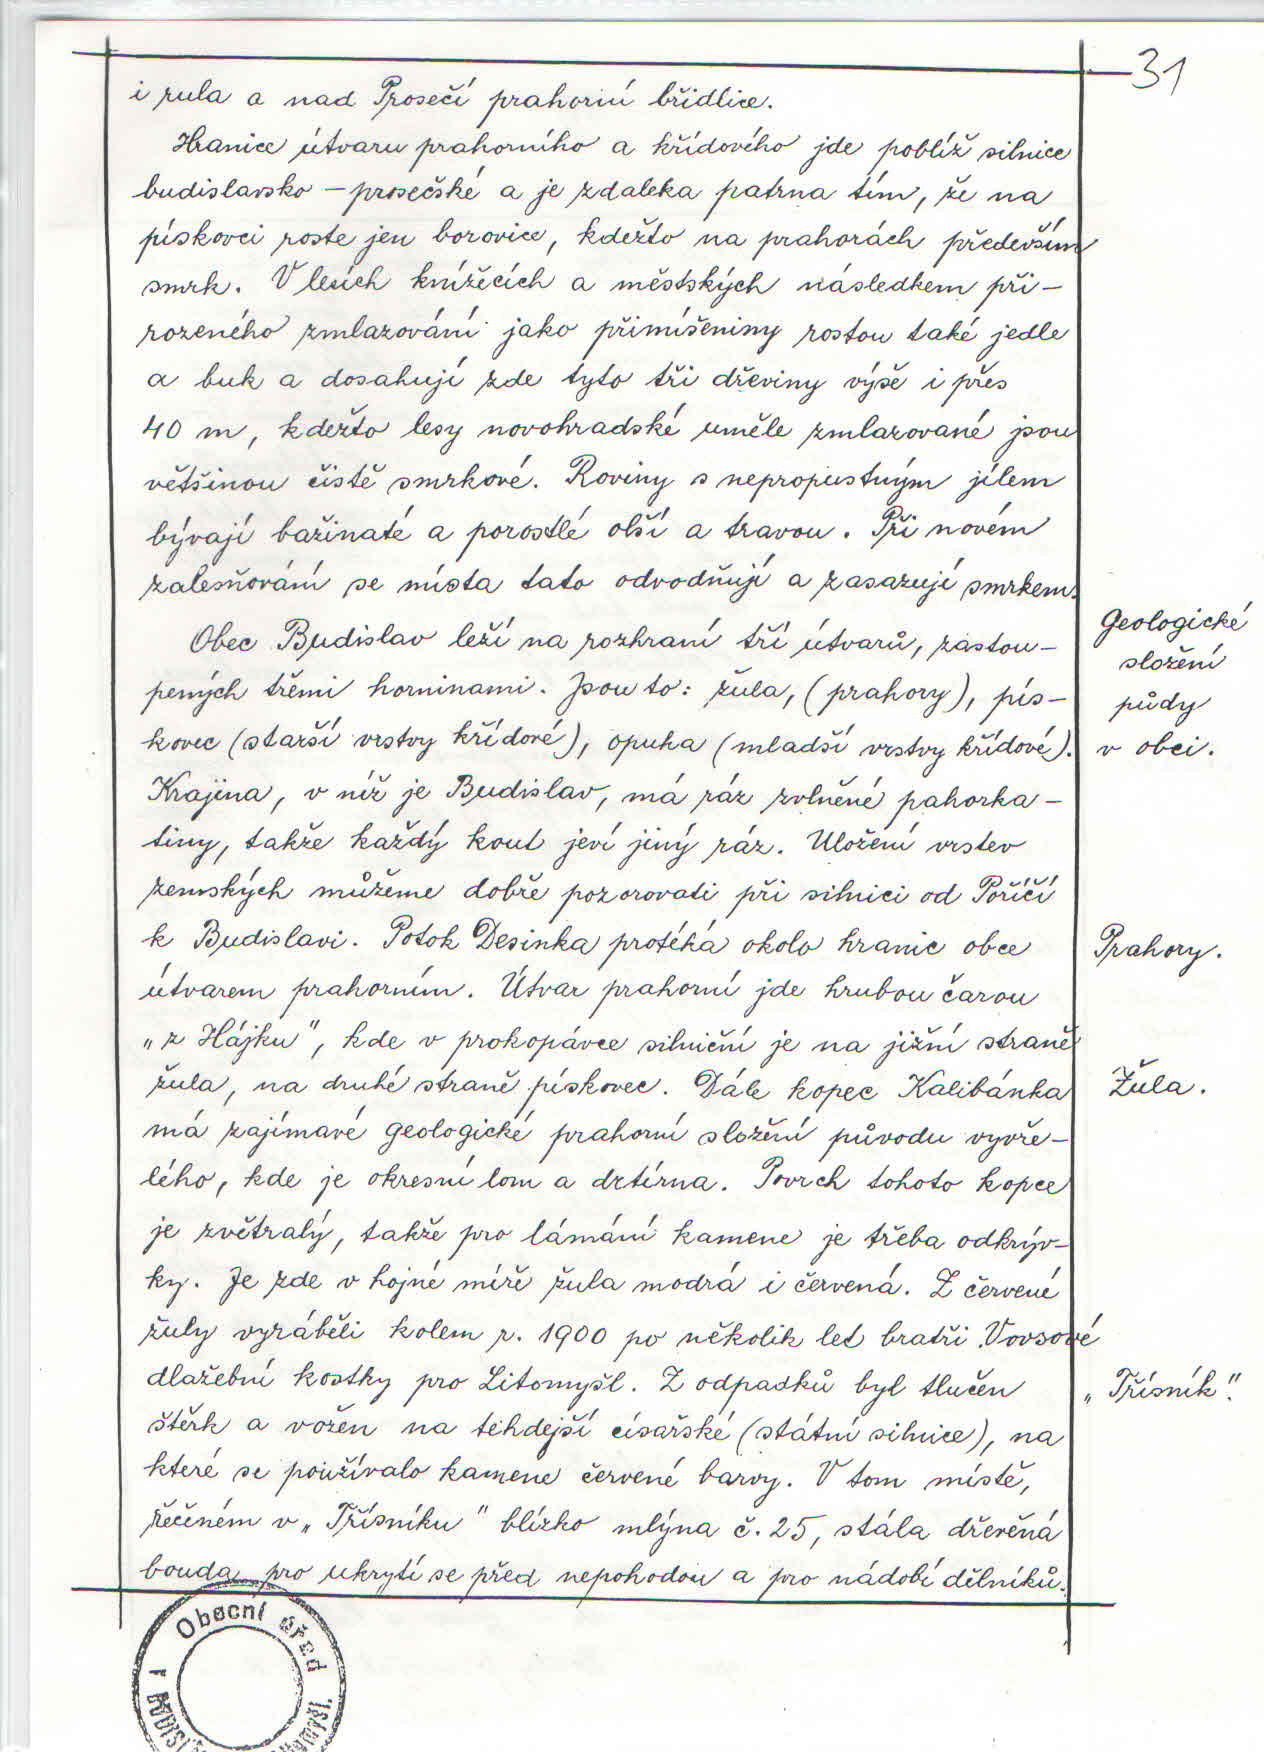 31
i rula a nad Prosečí prahorní břidlice.
Hranice útvaru prahorního a křídového jde poblíž silnice
budislavsko – prosečské a je zdaleka patrna tím, že na
pískovci roste jen borovice, kdežto na prahorách především
smrk. V lesích knížecích a městských následkem při-
rozeného zmlazování jako přimíšeniny rostou také jedle
a buk a dosahují zde tyto tři dřeviny výše i přes
40 m, kdežto lesy novohradské uměle zmlazované jsou
většinou čistě smrkové. Roviny s nepropustným jílem
bývají bažinaté a porostlé olší a travou. Při novém
zalesňování se místa tato odvodňují a zasazují smrkem.
Geologické
složení
půdy
v obci.
Obec Budislav leží na rozhraní tří útvarů, zastou-
pených třemi horninami. Jsou to: žula, (prahory), pís-
kovec (starší vrstvy křídové), opuka (mladší vrstvy křídové).
Krajina, v níž je Budislav, má ráz zvlněné pahorka-
tiny, takže každý kout jeví jiný ráz. Uložení vrstev
zemských můžeme dobře pozorovati při silnici od Poříčí
k Budislavi. Potok Desinka protéká okolo hranic obce
Prahory.
útvarem prahorním. Útvar prahorní jde hrubou čarou
„z Hájku", kde v prokopávce silniční je na jižní straně
žula, na druhé straně pískovec. Dále kopec Kalibánka
Žula.
má zajímavé geologické prahorní složení původu vyvře-
lého, kde je okresní lom a drtírna. Povrch tohoto kopce
je zvětralý, takže pro lámání kamene je třeba odkrýv-
ky. Je zde v hojné míře žula modrá i červená. Z červené
žuly vyráběli kolem r. 1900 po několik let bratři Vovsové
dlažební kostky pro Litomyšl. Z odpadků byl tlučen
„Třísník".
štěrk a vožen na tehdejší císařské (státní silnice), na
které se používalo kamene červené barvy. V tom místě,
řečeném v „Třísníku" blízko mlýna č. 25, stála dřevěná
bouda pro ukrytí se před nepohodou a pro nádobí dělníků.
Obecní úřad